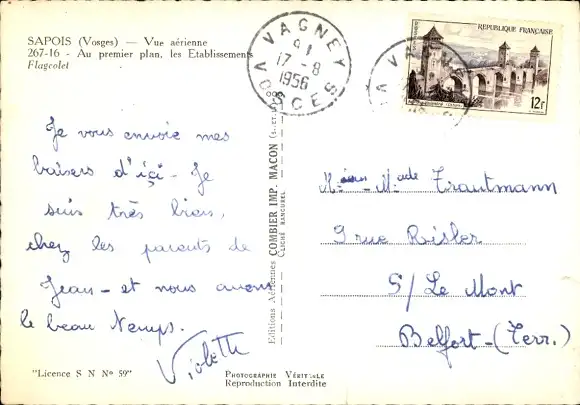 SAPOIS (Vosges) — Vue aérienne
267-16 - Au premier plan, les Etablissements
Flageolet
VAGNEY
17-8
1956
VOSGES
REPUBLIQUE FRANÇAISE
12F
Je vous envoie mes
baisers d'içi - Je
suis très bien,
chez les parents de
Jean - et nous avons
le beau temps.
Violette
Editions Aériennes COMBIER IMP. MACON
CLICHÉ RANCUREL
Trautmann
9 rue Risler
S/ Le Mont
Belfort-(Terr.)
"Licence S N N° 59"
PHOTOGRAPHIE VÉRITABLE
Reproduction Interdite